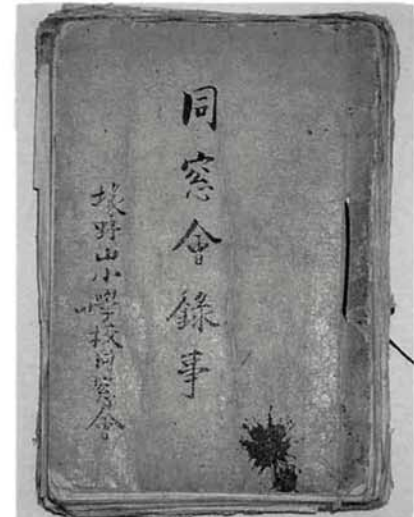 同窓會錄事
埰野山小學校同窓會